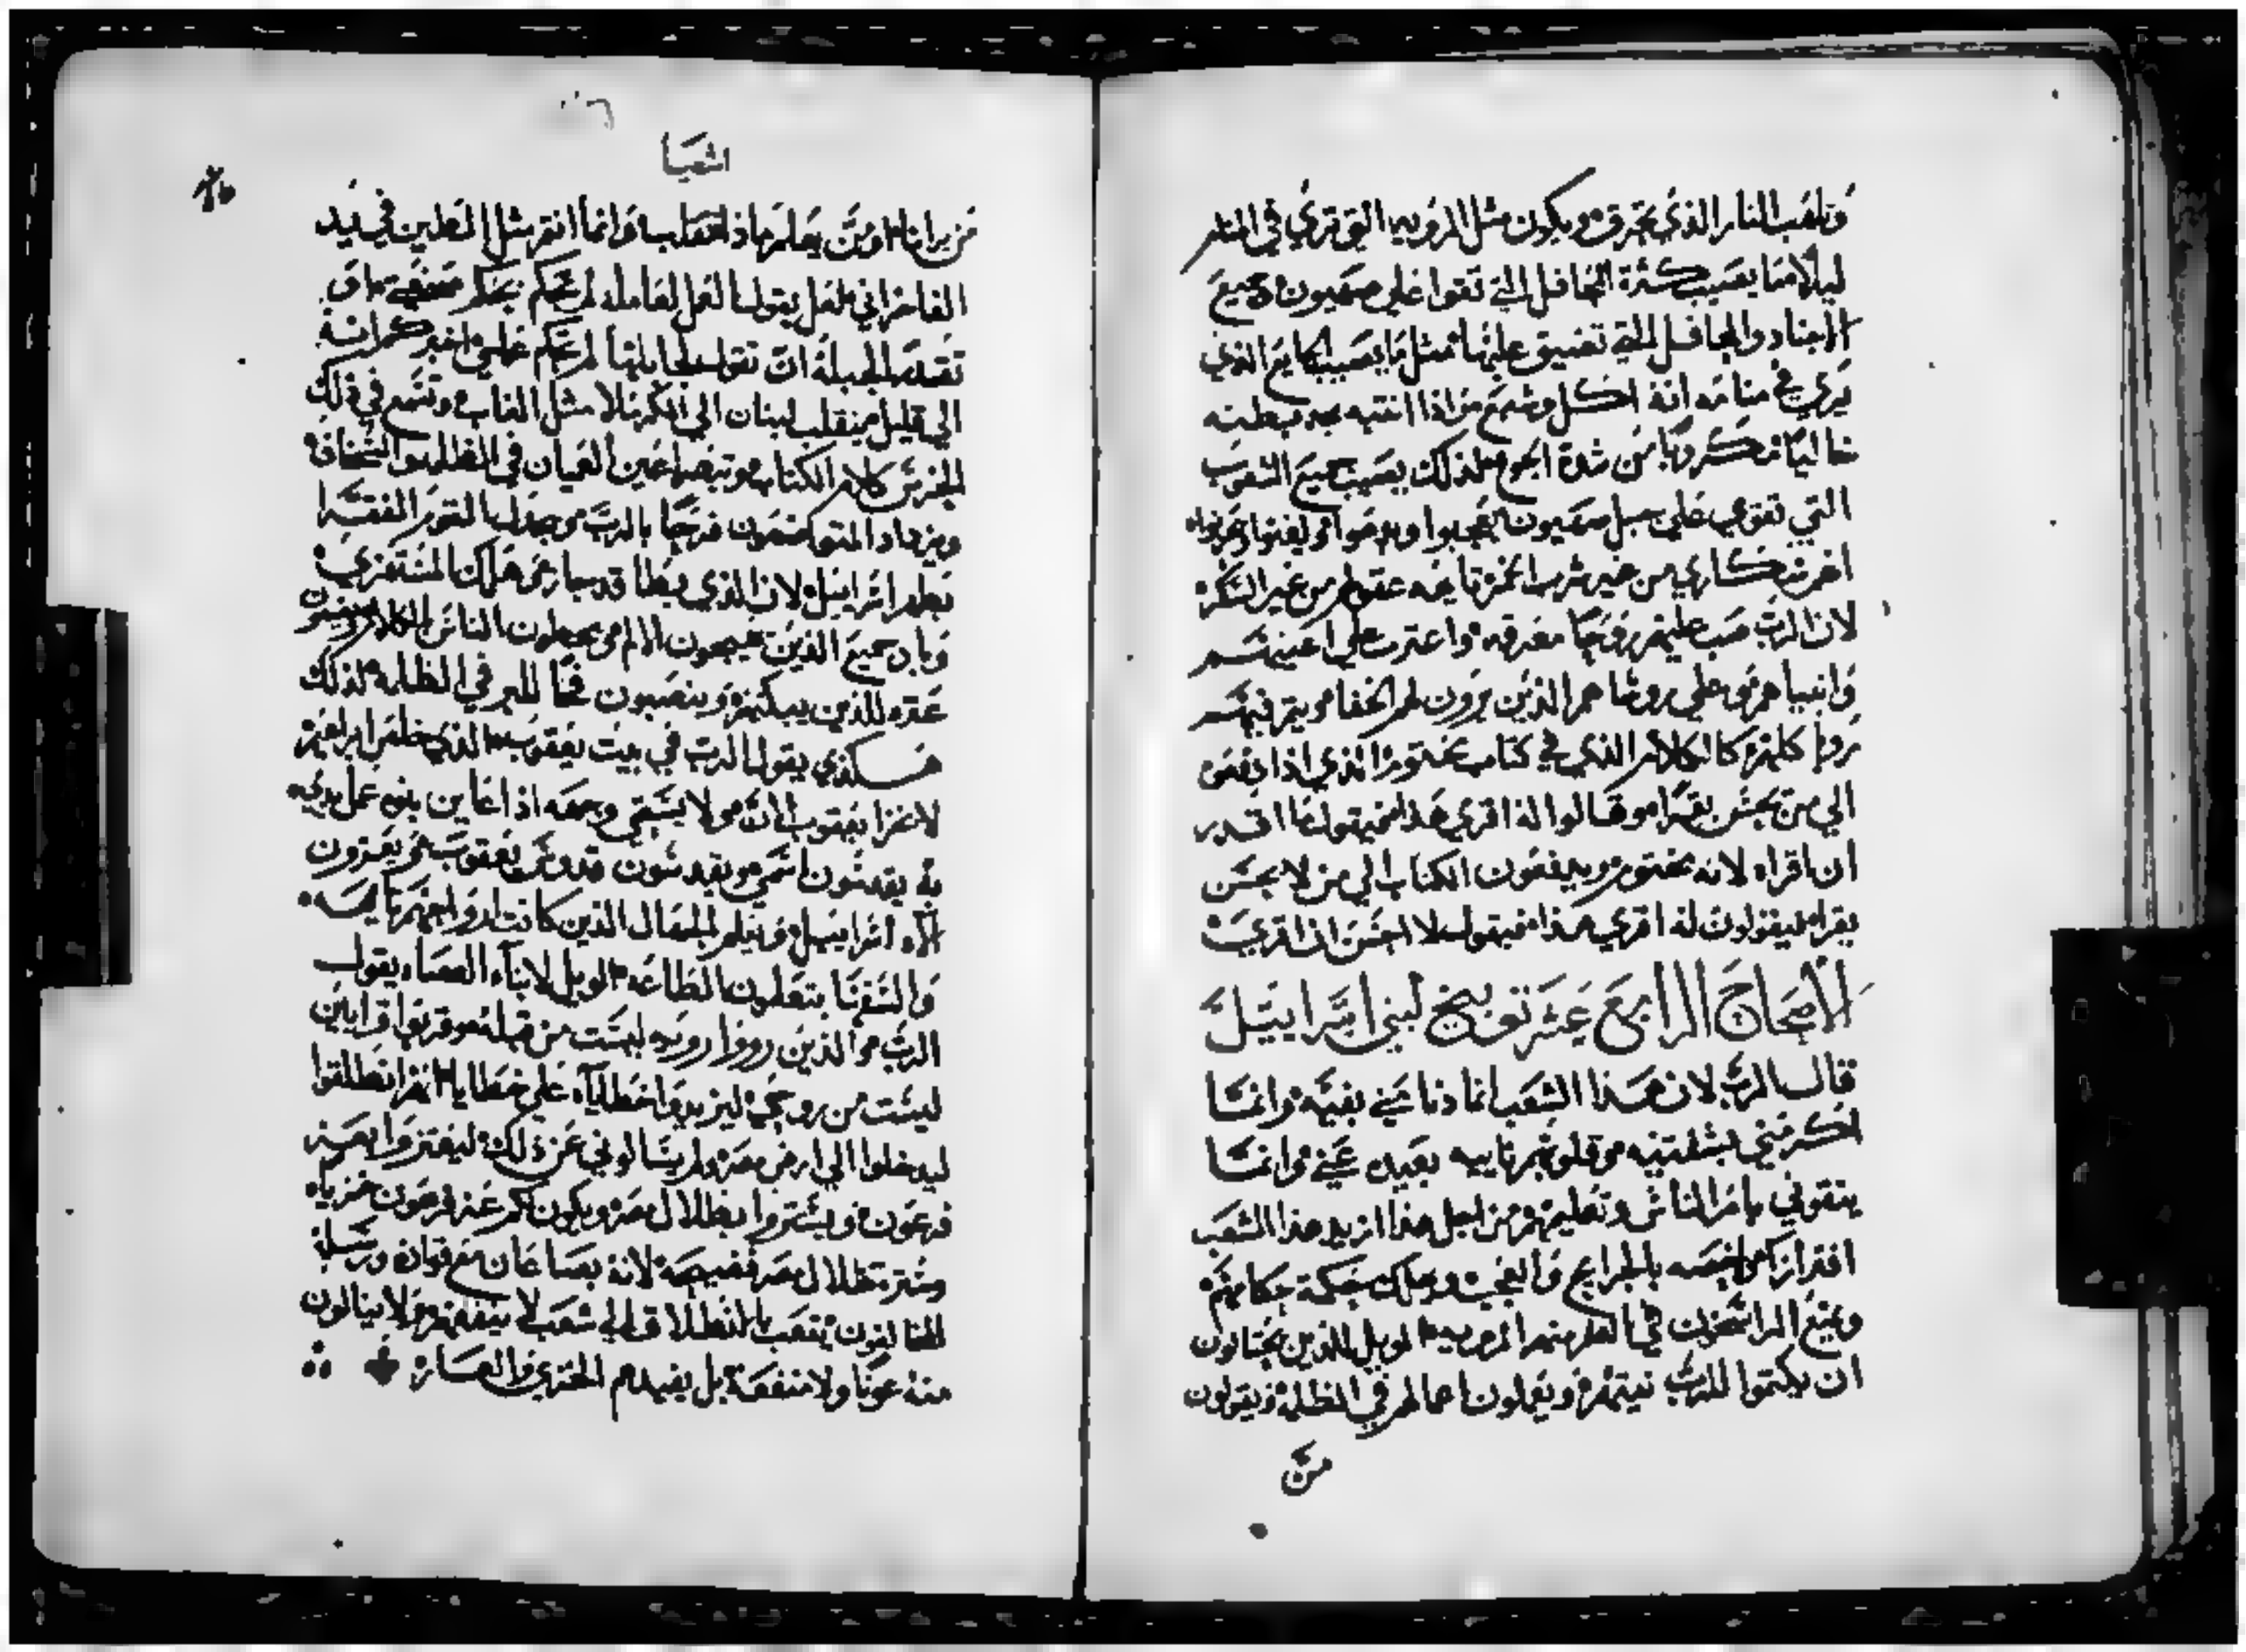 وتلهب النار الذي تحرق ويكون مثل الرويه التي تري في المنام
ليلا مما يصيب كثرة المحافل التي تقوا علي صهيون جميع
الاجناد والمحافل التي تضيق عليها مثل ما يصيب الجايع الذي
يري في منامه انه اكل وشبع فاذا انتبه يجد بطنه
خاليا مكروبا من شدة الجوع كذلك يصيب جميع الشعوب
التي تقوي علي جبل صهيون
سكاري من غير شرب الخمر تايهه عقولهم من غير السكر
لان الرب صب عليهم روحا مغرقه واعترت علي اعينهم
وانبياهم وعلي روساهم الذين يرون لهم الخفا ويتم فيهم
رويا كلهم كالكلام الذي في كتاب مختوم الذي اذا دفعوه
الي من يحسن يقرا وقالوا له اقري هذا فيقول ما اقدر
ان اقراه لانه مختوم ويدفعون الكتاب الي من لا يحسن
يقرا فيقولون له اقري هذا فيقول لا احسن ان اقري
الأصحاح الرابع عشر توبيخ لبني اسراييل
قال الرب لان هذا الشعب انما دنا مني بفيه وانما
اكرمني بشفتيه وقلوبهم تاييه بعيده عني وانما
يتقوني بامر الناس وتعليمهم من اجل هذا ازيد هذا الشعب
افتراز بالجرايح والعجب ويهلك حكمة حكمايهم
ويمنع الراسخون في العلم منهم المرويه الويل للذين يختالون
ان يكتموا للرب نيتهم ويعملون اعمالهم في الظلمة ويقولون
من
اشعيا
من يرانا او من يعلم ماذا نتقلب وانما انتم مثل الطين في يد
الفاخراني هل يقول العمل لعامله لم تحكم
تقدر الجبلة ان تقول لجابلها لم تحكم علي
الي قليل ينقلب لبنان الي الكرمل مثل الغاب وتسمع في ذلك
الخرس كلام الكتاب وتبصر اعين العميان في الظلمه
ويزداد المتواضعون فرحا بالرب ويجدل القوم الفقرا
بطهر اسراييل لان الذي بطا قد صار هلك المستهزي
وباد جميع الذين يهيجون الاثم ويجعلون الناس الكلام
عثره للذين يبكتهم وينصبون فخا للبر في الظلمه لذلك
هكذي يقول الرب في بيت يعقوب الذي خلص ابراهيم
لا يخزا يعقوب الان ولا يستحي وجهه اذا عاين بنيه عمل يدي
به يقدسون اسمي ويقدسون قدوس يعقوب ويعزون
الاه اسراييل وتعلم الجهال الذين كانت ارواحهم تايهه
والسفها يتعلمون الطاعه الويل لابناء العصاه يقول
الرب الذين رووا رويه ليست من قبله وقربوا قرابين
ليست من روحي ليزيدوا خطاياه علي خطايا انهم انطلقوا
ليدخلوا الي ارض مصر ولم يسالوني عن ذلك ليعتزوا بعزة
فرعون ويستتروا بظلال مصر ويكون لكم عز فرعون خزياه
وسترة ظلال مصر فضيحة لانه بصاعان مع قواده ورسله
المخالفون يتعب بالانطلاق الي شعب لا ينفعهم ولا ينالون
منه عونا ولا منفعة بل يفيدهم الخزي والعار